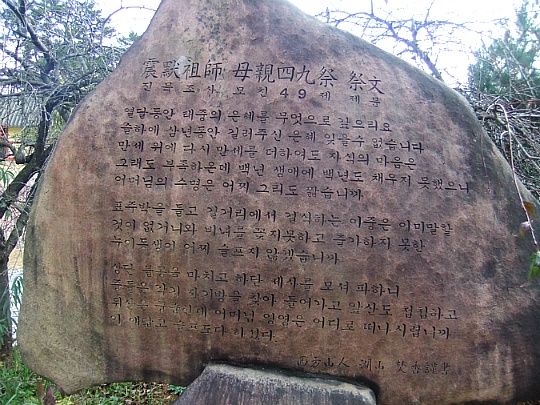 震默祖師 母親四九祭 祭文
진묵조사 모친 49 제 제문
열달동안 태중의 은혜를 무엇으로 갚으리요
슬하에 삼년동안 길러주신 은혜 잊을수 없습니다
만세 위에 다시 만세를 더하여도 자식의 마음은
그래도 부족하온데 백년 생애에 백년도 채우지 못했으니
어머님의 수명은 어찌 그리도 짧습니까
표주박을 들고 길거리에서 걸식하는 이중은 이미말할
것이 없거니와 비녀를 꽂지못하고 출가하지 못한
누이동생이 어찌 슬프지 않겠습니까
상단 불공을 마치고 하단 제사를 모셔 파하니
중들은 각기 자기방을 찾아 들어가고 앞산도 첩첩하고
뒷산도 중중한데 어머님 영혼은 어디로 떠나시렵니까
아 애닯고 슬프도다 하셨다
西方山人